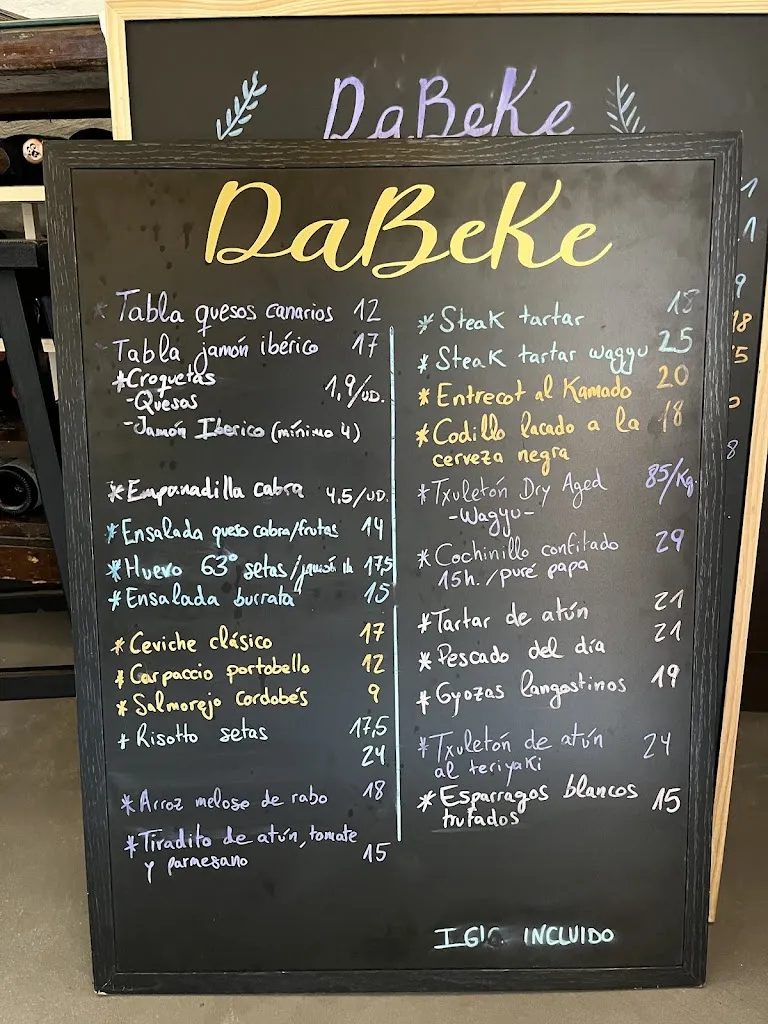 DaBeKe
DaBeKe
* Tabla quesos canarios 12
Tabla jamón ibérico 17
*Croquetas 1,9/UD.
-Quesos
-Jamón Iberico (mínimo 4)
*Empanadilla cabra 4,5/UD.
*Ensalada queso cabra/frutas 14
*Huevo 63° setas/ 17,5
*Ensalada burrata 15
* Ceviche clásico 17
* Carpaccio portobello 12
* Salmorejo Cordobés 9
* Risotto setas 17,5
24
* Arroz meloso de rabo 18
*Tiradito de atún, tomate
y parmesano 15
* Steak tartar 18
* Steak tartar waggu 25
* Entrecot al Kamado 20
* Codillo lacado a la 18
cerveza negra
* Txuletón Dry Aged 85/Kg.
-Wagyu-
* Cochinillo confitado 29
15h./puré papa
*Tartar de atún 21
* Pescado del día 21
* Gyozas langostinos 19
*Txuletón de atún 24
al teriyaki
* Esparragos blancos 15
trufados
IGIC INCLUIDO